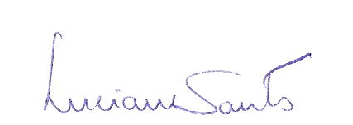 Luciane Santos